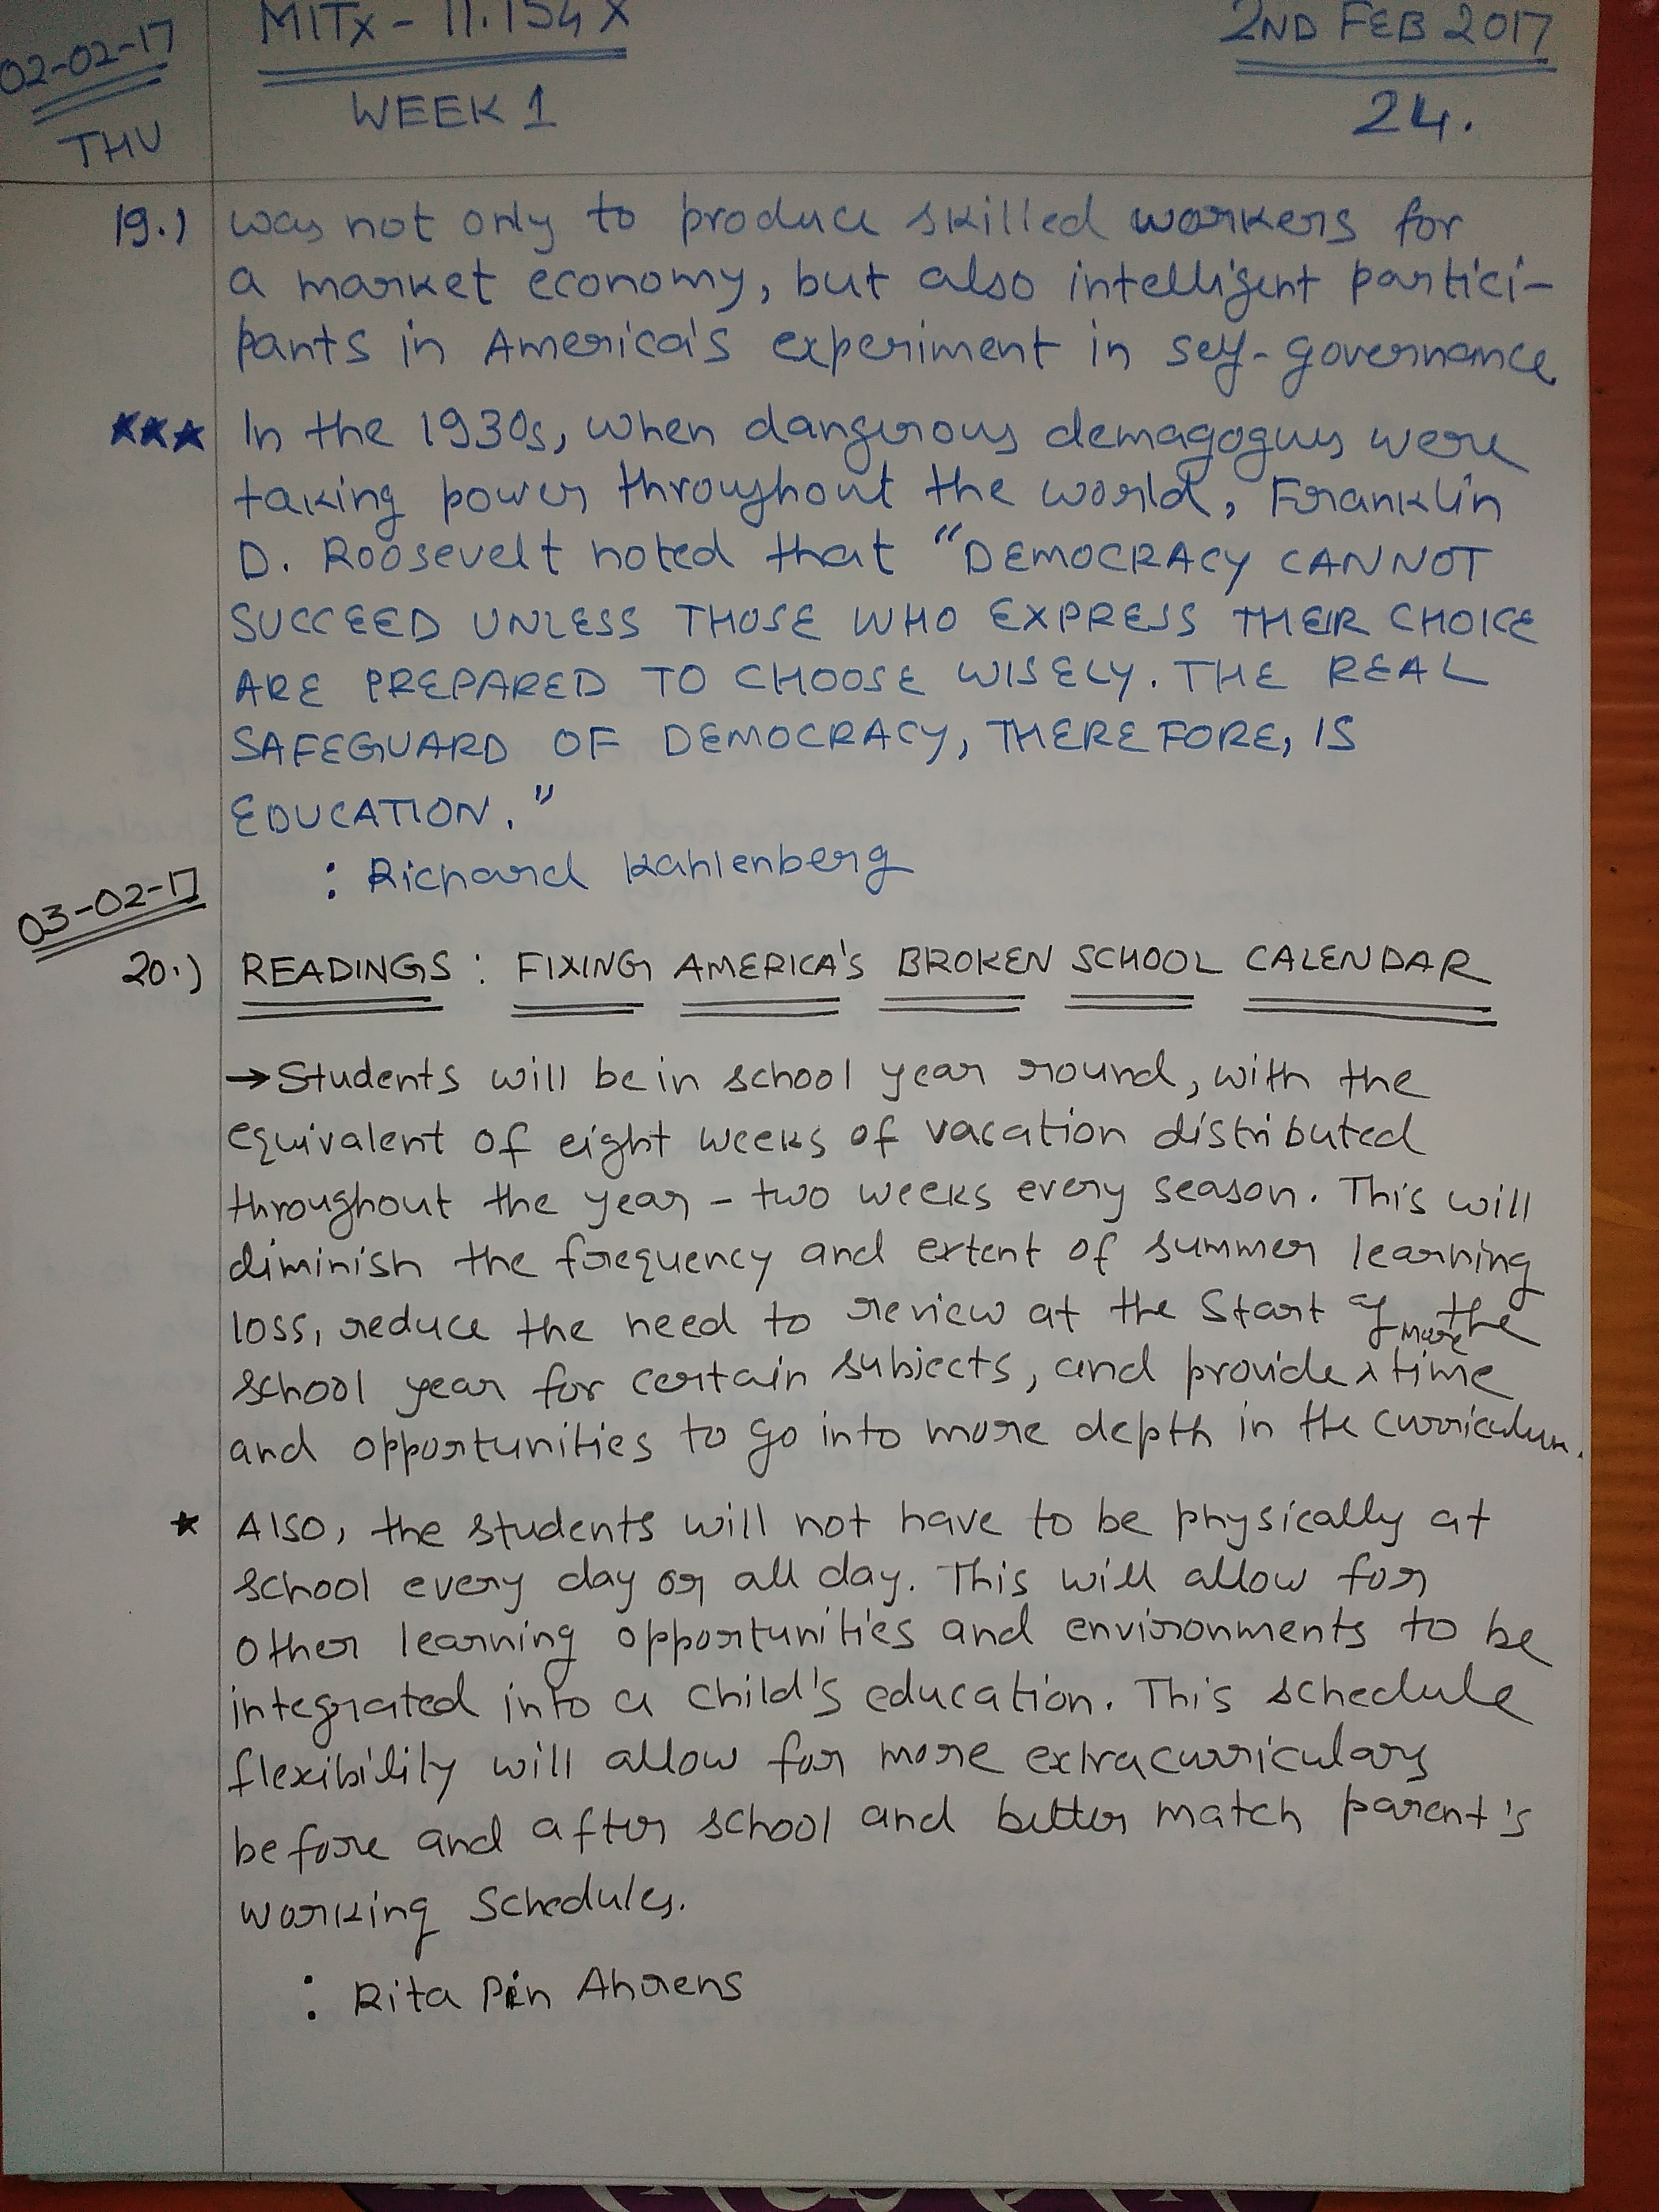 02-02-17
THU
MITx - 11.154x
WEEK 1
2ND FEB 2017
24.
19.) was not only to produce skilled workers for
a market economy, but also intelligent partici-
pants in America's experiment in self-governance.
★★★ In the 1930s, when dangerous demagogues were
taking power throughout the world, Franklin
D. Roosevelt noted that "DEMOCRACY CANNOT
SUCCEED UNLESS THOSE WHO EXPRESS THEIR CHOICE
ARE PREPARED TO CHOOSE WISELY. THE REAL
SAFEGUARD OF DEMOCRACY, THEREFORE, IS
EDUCATION."
: Richard Kahlenberg
03-02-17
20.) READINGS : FIXING AMERICA'S BROKEN SCHOOL CALENDAR
→ Students will be in school year round, with the
equivalent of eight weeks of vacation distributed
throughout the year - two weeks every season. This will
diminish the frequency and extent of summer learning
loss, reduce the need to review at the start of the
school year for certain subjects, and provide more time
and opportunities to go into more depth in the curriculum.
★ Also, the students will not have to be physically at
school every day or all day. This will allow for
other learning opportunities and environments to be
integrated into a child's education. This schedule
flexibility will allow for more extracurriculars
before and after school and better match parent's
working schedules.
: Rita Pin Ahrens